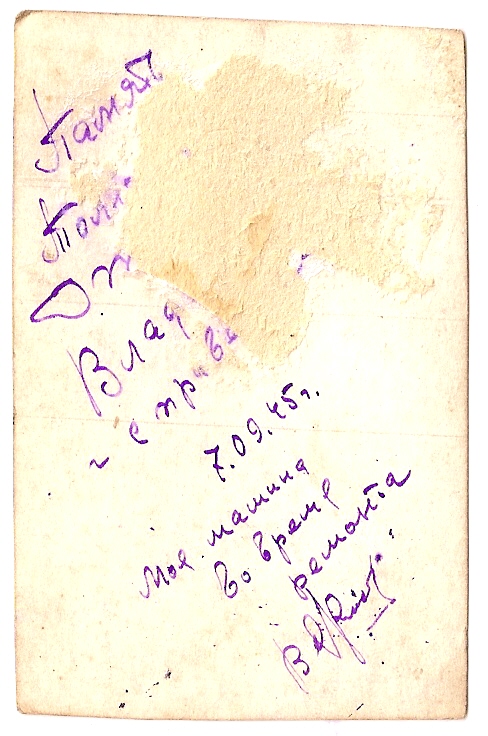 Памят
Тол
От
Влад
с прав
7.09.45г.
Моя машина
во время
ремонта